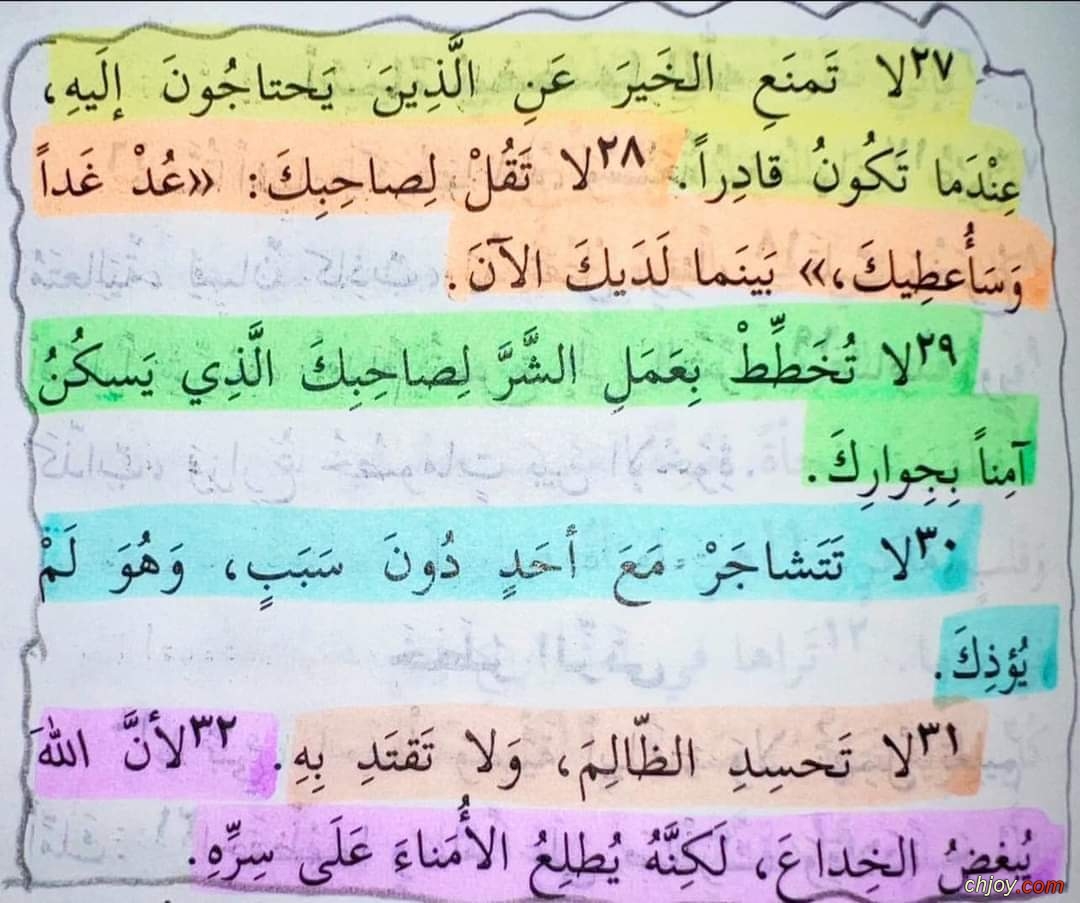 ٢٧لا تَمنَعِ الخَيرَ عَنِ الَّذِينَ يَحتاجُونَ إلَيهِ،
عِنْدَمَا تَكُونُ قادِراً. ٢٨لا تَقُلْ لِصاحِبِكَ: «عُدْ غَداً
وَسَأُعطِيكَ،» بَينَما لَدَيكَ الآنَ.
٢٩لا تُخَطِّطْ بِعَمَلِ الشَّرَّ لِصاحِبِكَ الَّذِي يَسكُنُ
آمِناً بِجِوارِكَ.
٣٠لا تَتَشاجَرْ مَعَ أحَدٍ دُونَ سَبَبٍ، وَهُوَ لَمْ
يُؤذِكَ.
٣١لا تَحسِدِ الظّالِمَ، وَلا تَقتَدِ بِهِ. ٣٢لأنَّ اللهَ
يُبغِضُ الخِداعَ، لَكِنَّهُ يُطلِعُ الأُمَناءَ عَلَى سِرِّهِ.
chjoy.com